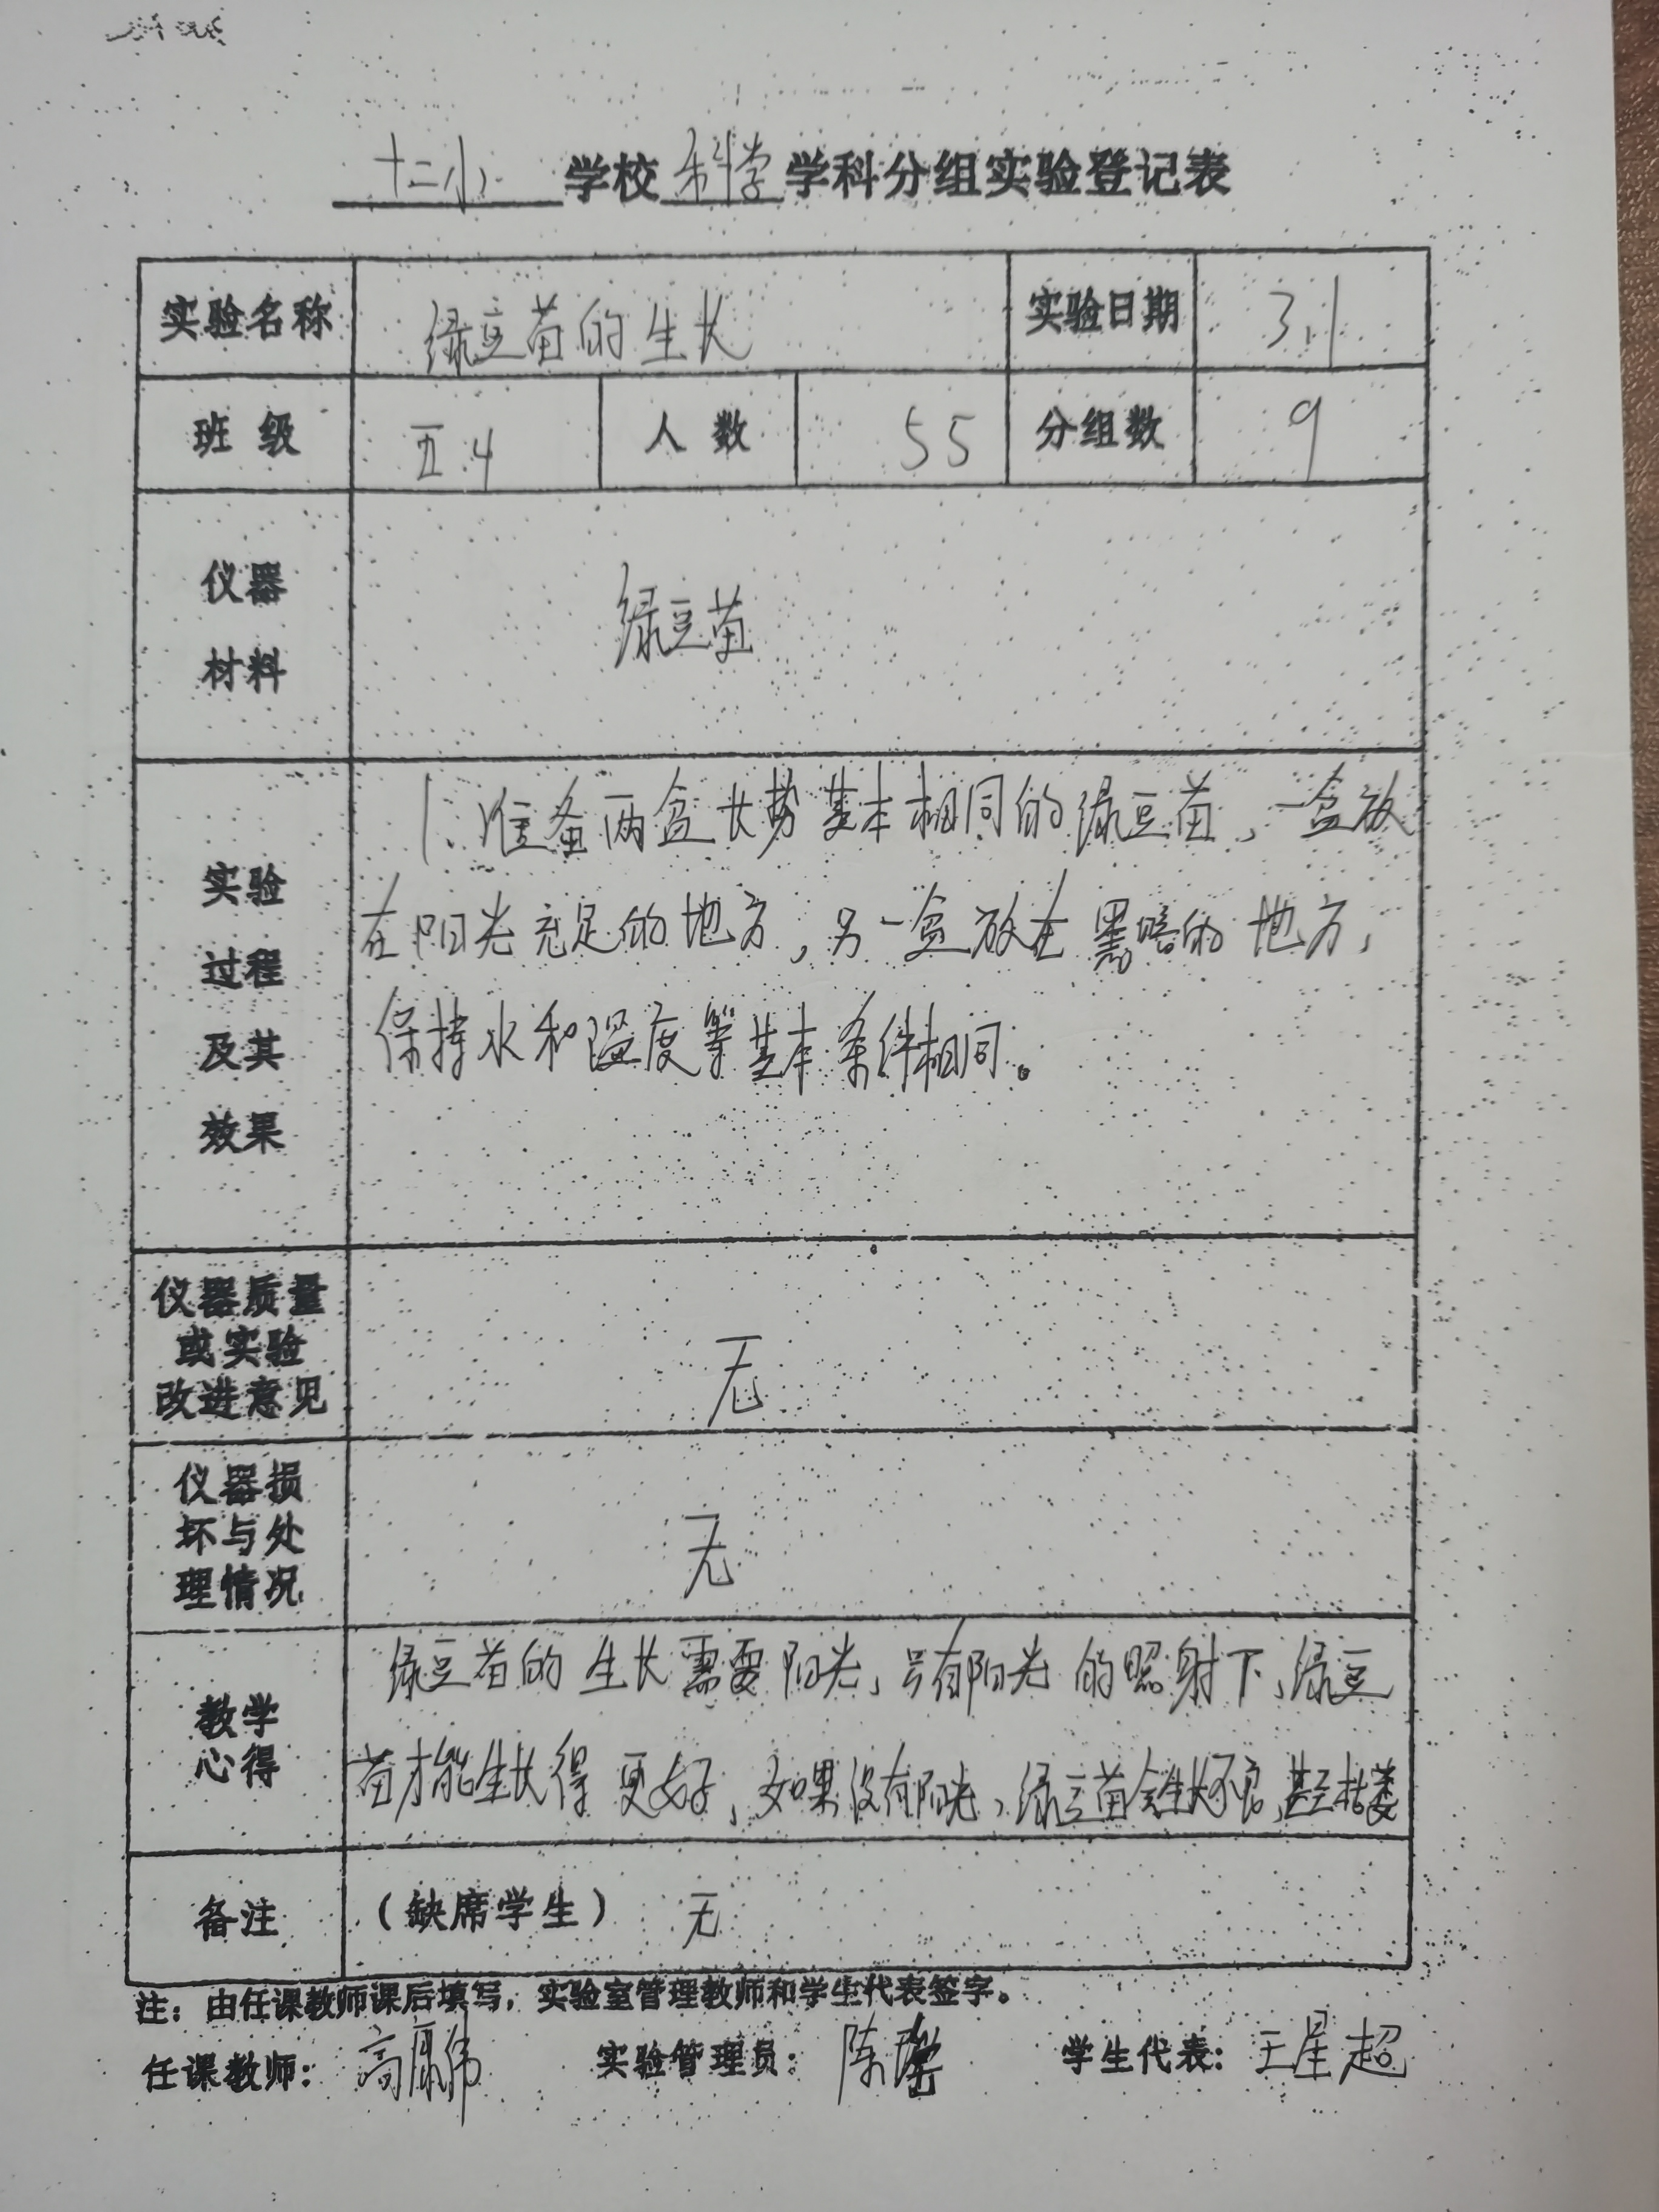 十二小 学校 科学 学科分组实验登记表
实验名称 绿豆苗的生长 实验日期 3.1
班级 五.4 人数 55 分组数 9
仪器
材料
绿豆苗
实验
过程
及其
效果
1、准备两盒长势基本相同的绿豆苗，一盒放
在阳光充足的地方，另一盒放在黑暗的地方，
保持水和温度等基本条件相同。
仪器质量
或实验
改进意见
无
仪器损
坏与处
理情况
无
教学
心得
绿豆苗的生长需要阳光，只有阳光的照射下，绿豆
苗才能生长得更好，如果没有阳光，绿豆苗会生长不良，甚至枯萎
备注 （缺席学生） 无
注：由任课教师课后填写，实验室管理教师和学生代表签字。
任课教师：高康伟 实验管理员：陈 学生代表：王星超